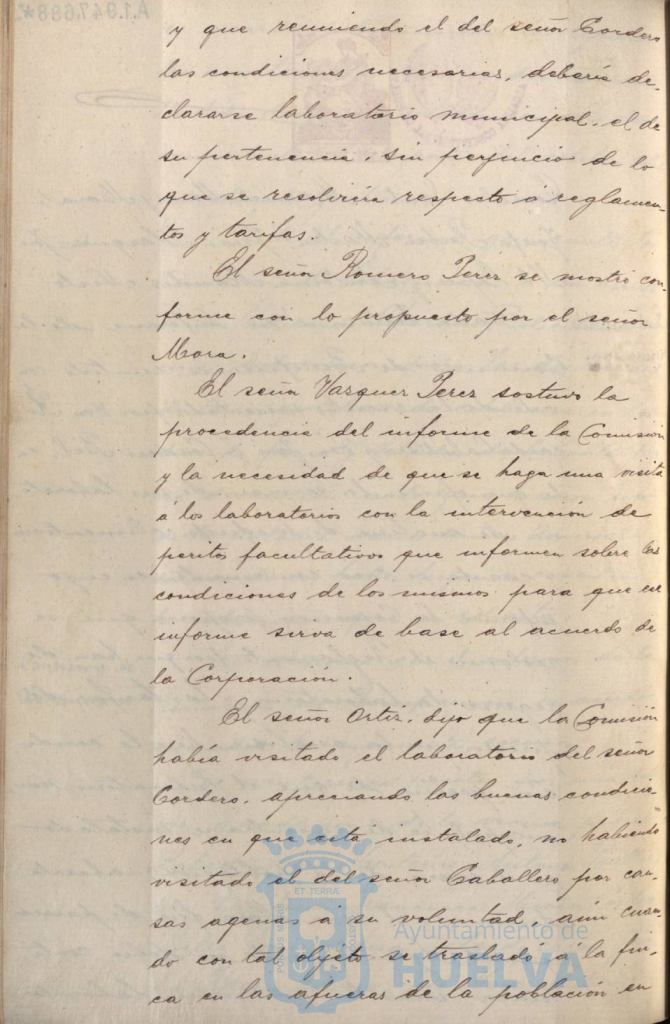 A.1.947.688*
y que reuniendo el del señor Cordero
las condiciones necesarias, debería de-
clararse laboratorio municipal, el de
su pertenencia, sin perjuicio de lo
que se resolviera respecto á reglamen-
tos y tarifas.
El señor Romero Perez se mostró con-
forme con lo propuesto por el señor
Mora.
El señor Vazquez Perez sostuvo la
procedencia del informe de la Comisión
y la necesidad de que se haga una visita
á los laboratorios con la intervención de
peritos facultativos que informen sobre las
condiciones de los mismos para que ese
informe sirva de base al acuerdo de
la Corporación.
El señor Ortiz, dijo que la Comisión
había visitado el laboratorio del señor
Cordero, apreciando las buenas condicio-
nes en que está instalado, no habiendo
visitado el del señor Caballero por cau-
sas agenas á su voluntad, aún cuan-
do con tal objeto se trasladó á la fin-
ca en las afueras de la población en
PORTUS MARIS ET TERRÆ CUSTODIA
Ayuntamiento de
HUELVA